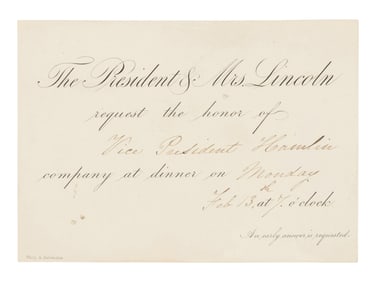 The President & Mrs. Lincoln
request the honor of
Vice President Hamlin
company at dinner on Monday
Feb 13th, at 7. o'clock
An early answer is requested.